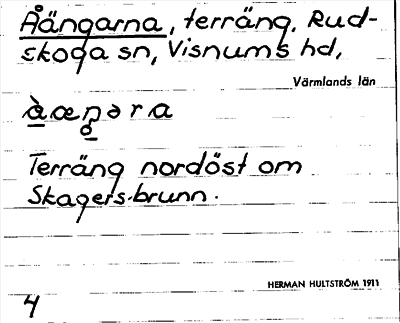 Åängarna, terräng, Rud-
skoga sn, Visnums hd,
Värmlands län
Terräng nordöst om
Skagersbrunn.
HERMAN HULTSTRÖM 1911
4